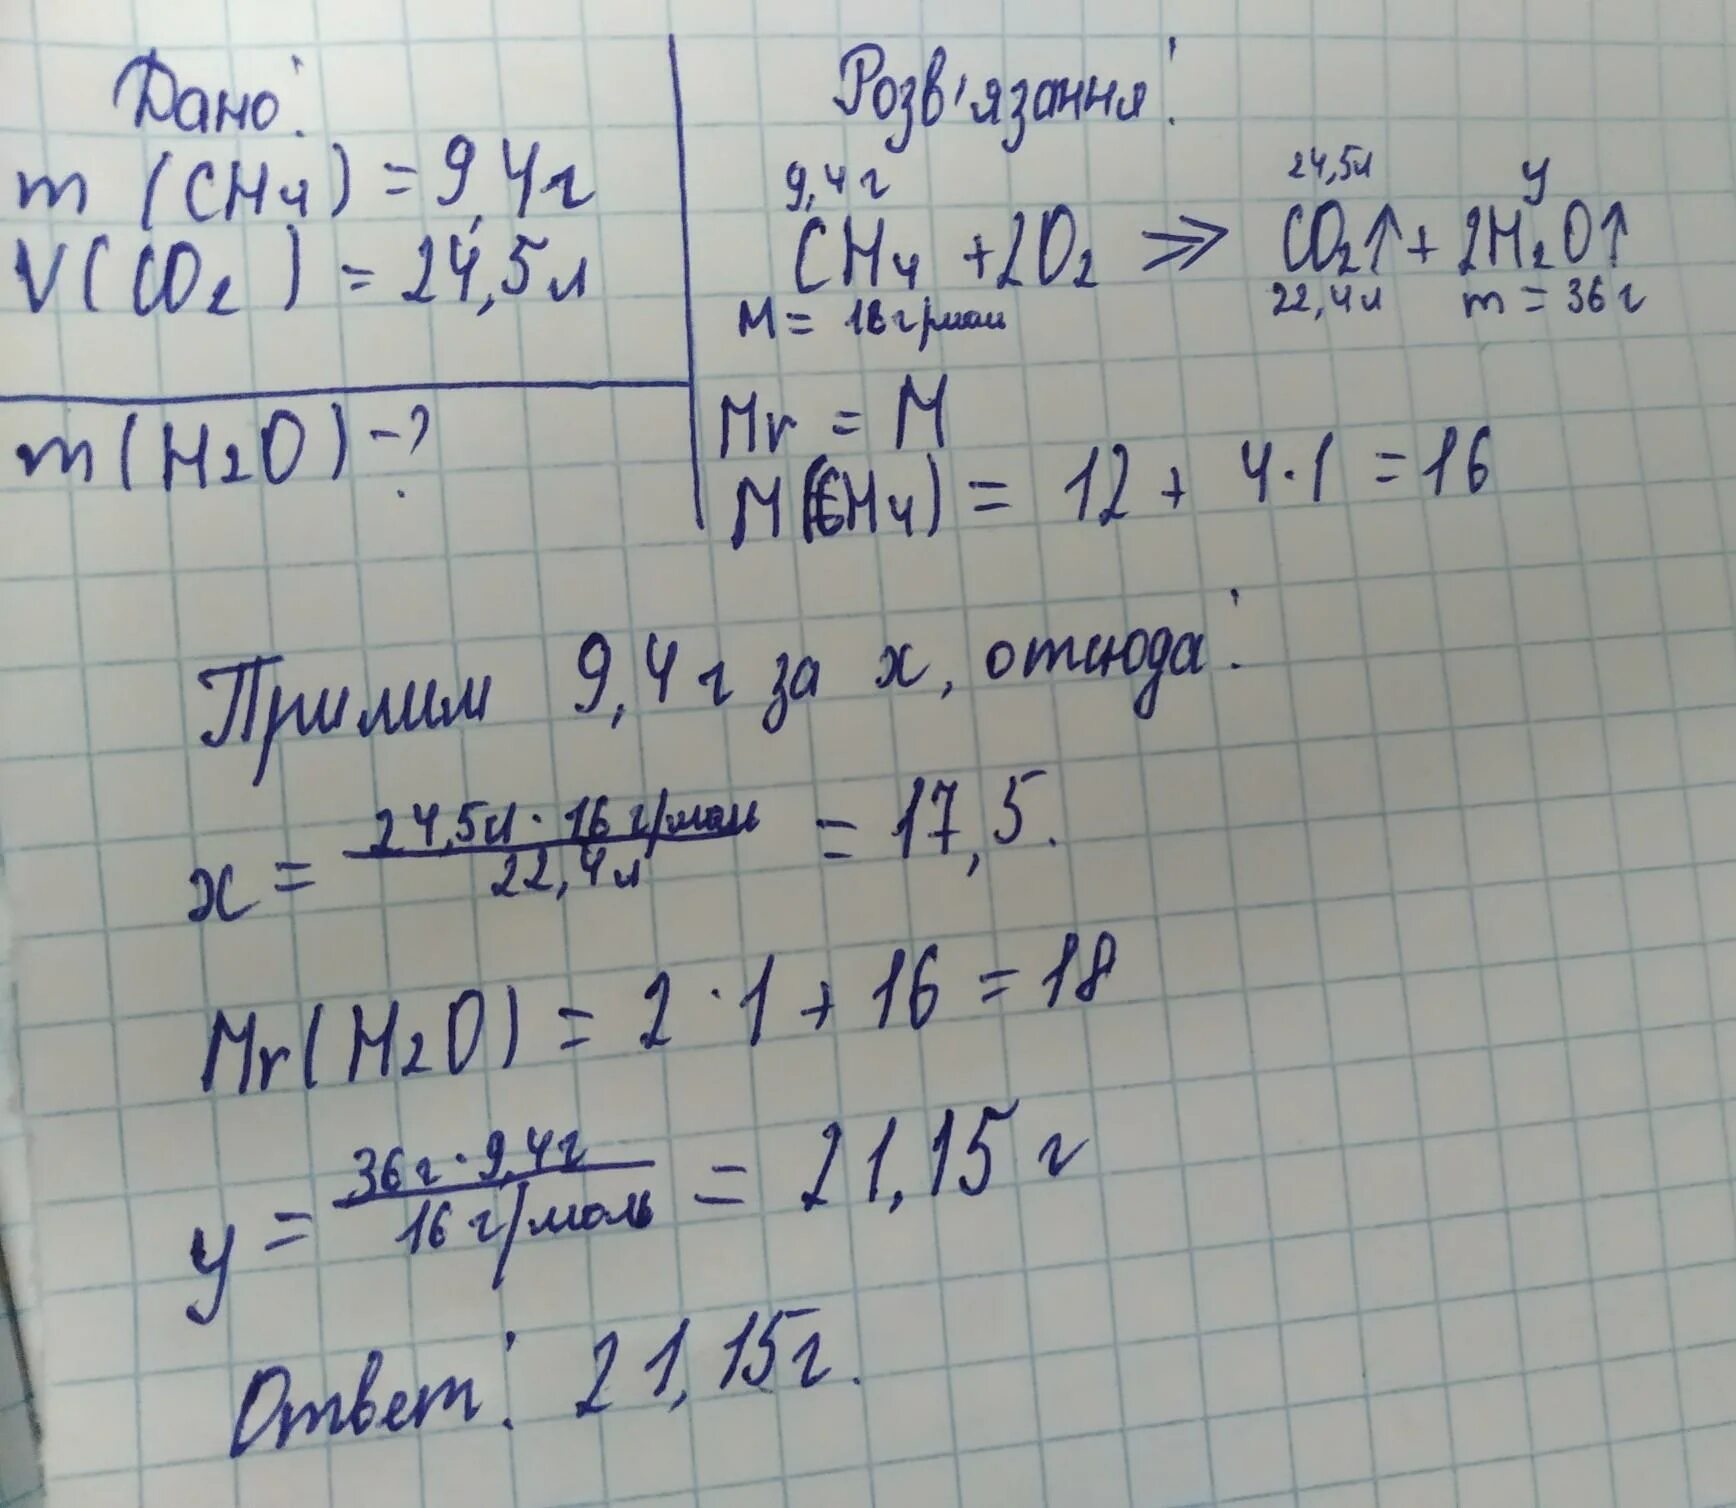 Дано:
m (CH4) = 9,4г
V (CO2) = 24,5л
m(H2O) -?
Розв'язання:
9,4г 24,5л y
CH4 + 2O2 → CO2↑ + 2H2O↑
M = 16г/моль 22,4л m = 36г
Mr = M
M(CH4) = 12 + 4·1 = 16
Прилим 9,4г за x, отсюда:
x = 24,5л · 16 г/моль / 22,4л = 17,5.
Mr(H2O) = 2·1 + 16 = 18
y = 36г · 9,4г / 16 г/моль = 21,15 г
Ответ: 21,15г.